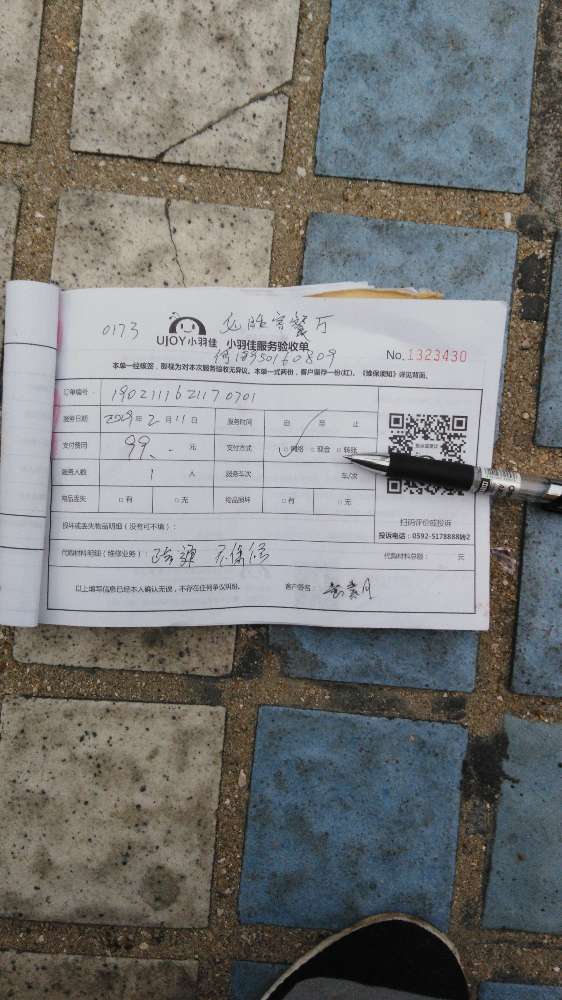 0173
UJOY小羽佳 小羽佳服务验收单
No.1323430
本单一经核签，即视为对本次服务验收无异议。本单一式两份，客户留存一份(红)。《维保须知》详见背面。
订单编号：
服务日期 2019年2月11日 服务时间 自 至 止
支付费用 99.- 元 支付方式 □网络 □现金 □转账
服务人数 1 人 服务车次 车/次
物品丢失 □有 □无 物品损坏 □有 □无
扫码评价或投诉
投诉电话：0592-5178888转2
损坏或丢失物品明细（没有可不填）：
代购材料明细（维修业务）： 代购材料总额： 元
以上填写信息已经本人确认无误，不存在任何争议纠纷。 客户签名：